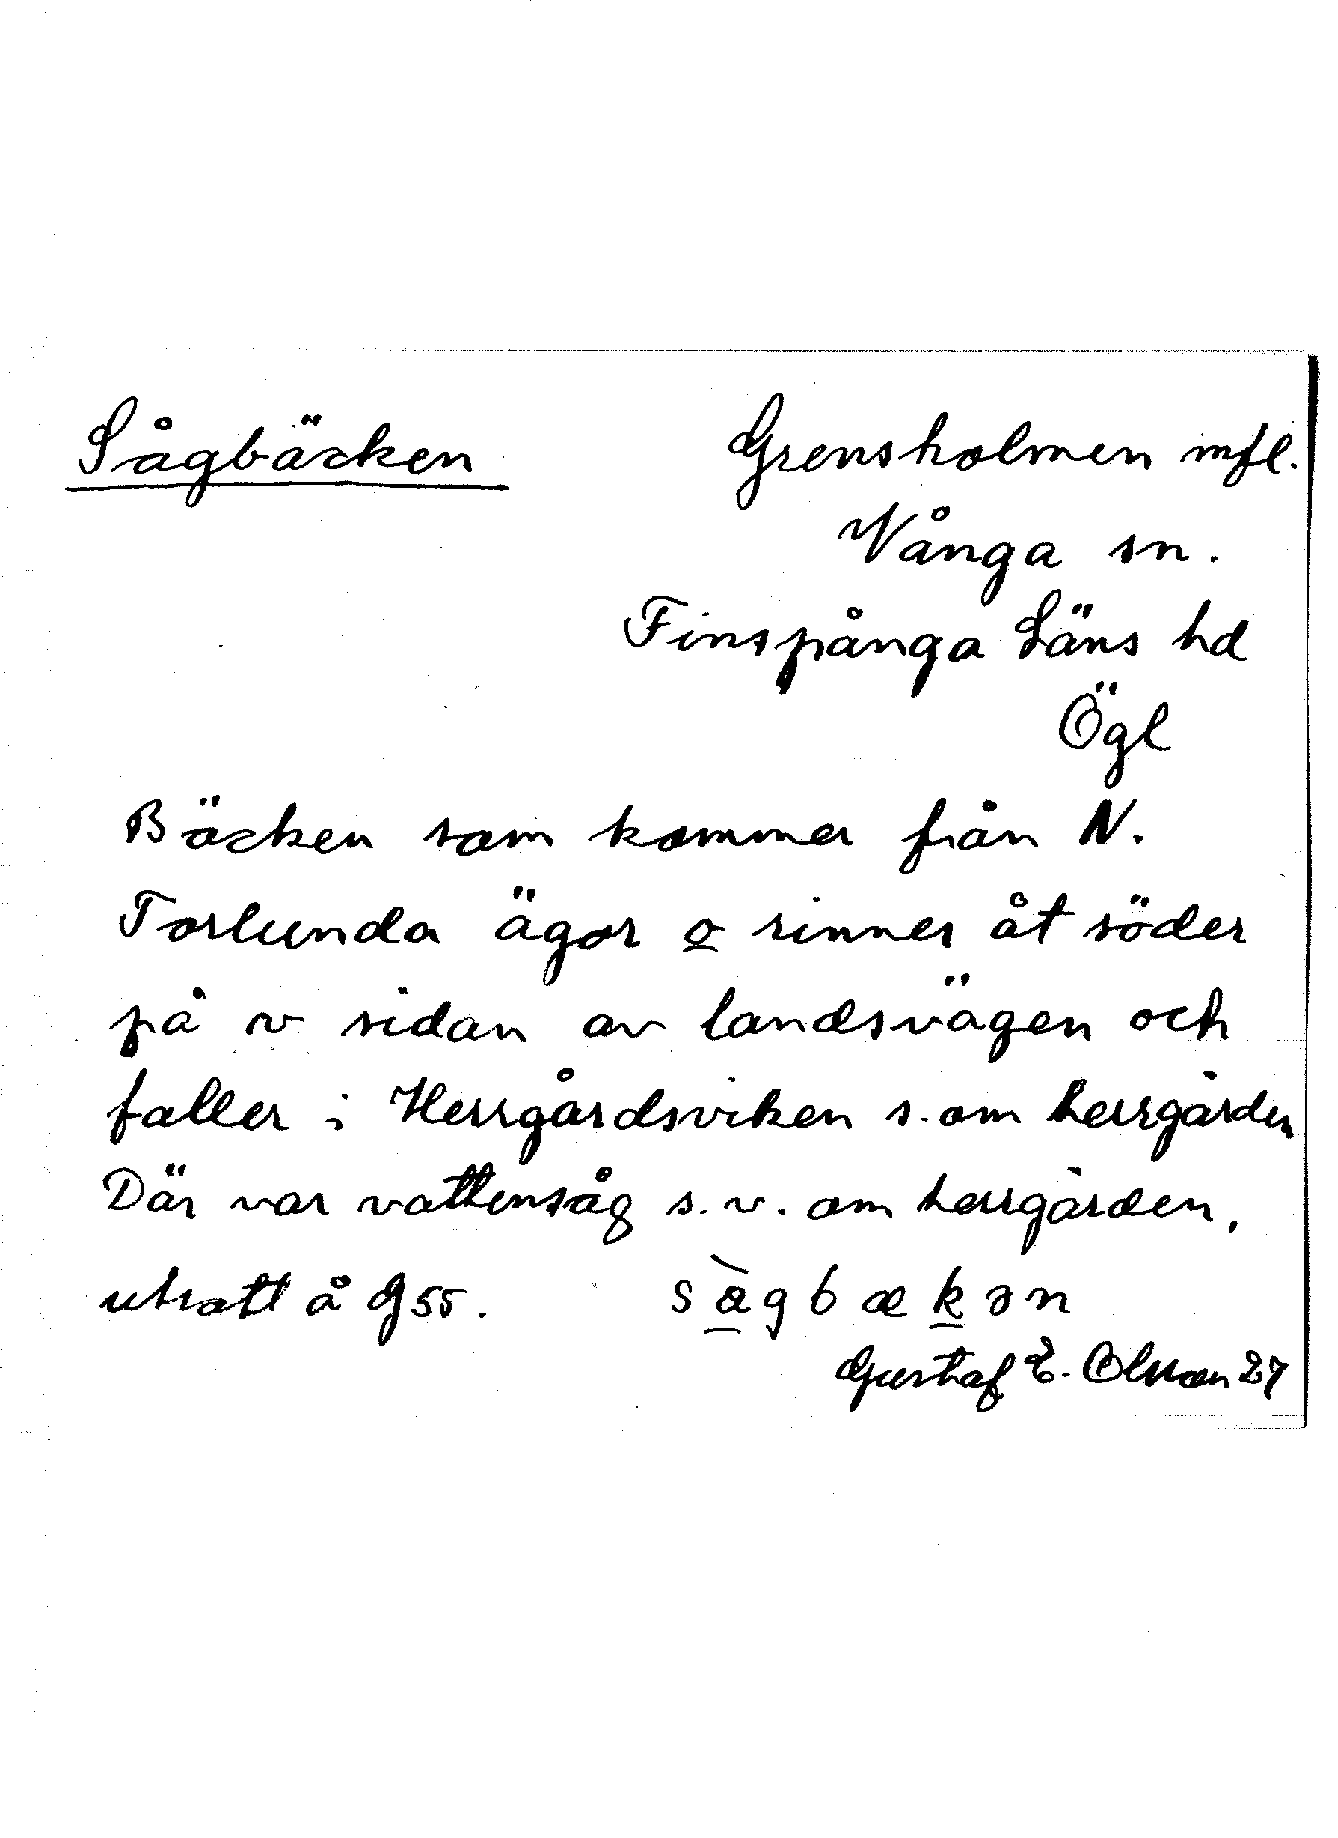 Sågbäcken
Grensholmen mfl.
Vånga sn.
Finspånga Läns hd
Ögl
Bäcken som kommer från N.
Torlunda ägor o rinner åt söder
på v sidan av landsvägen och
faller i Herrgårdsviken s. om herrgården
Där var vattensåg s. v. om herrgården.
utsatt å G55.
sàgbækən
Gustaf E. Olsson 27